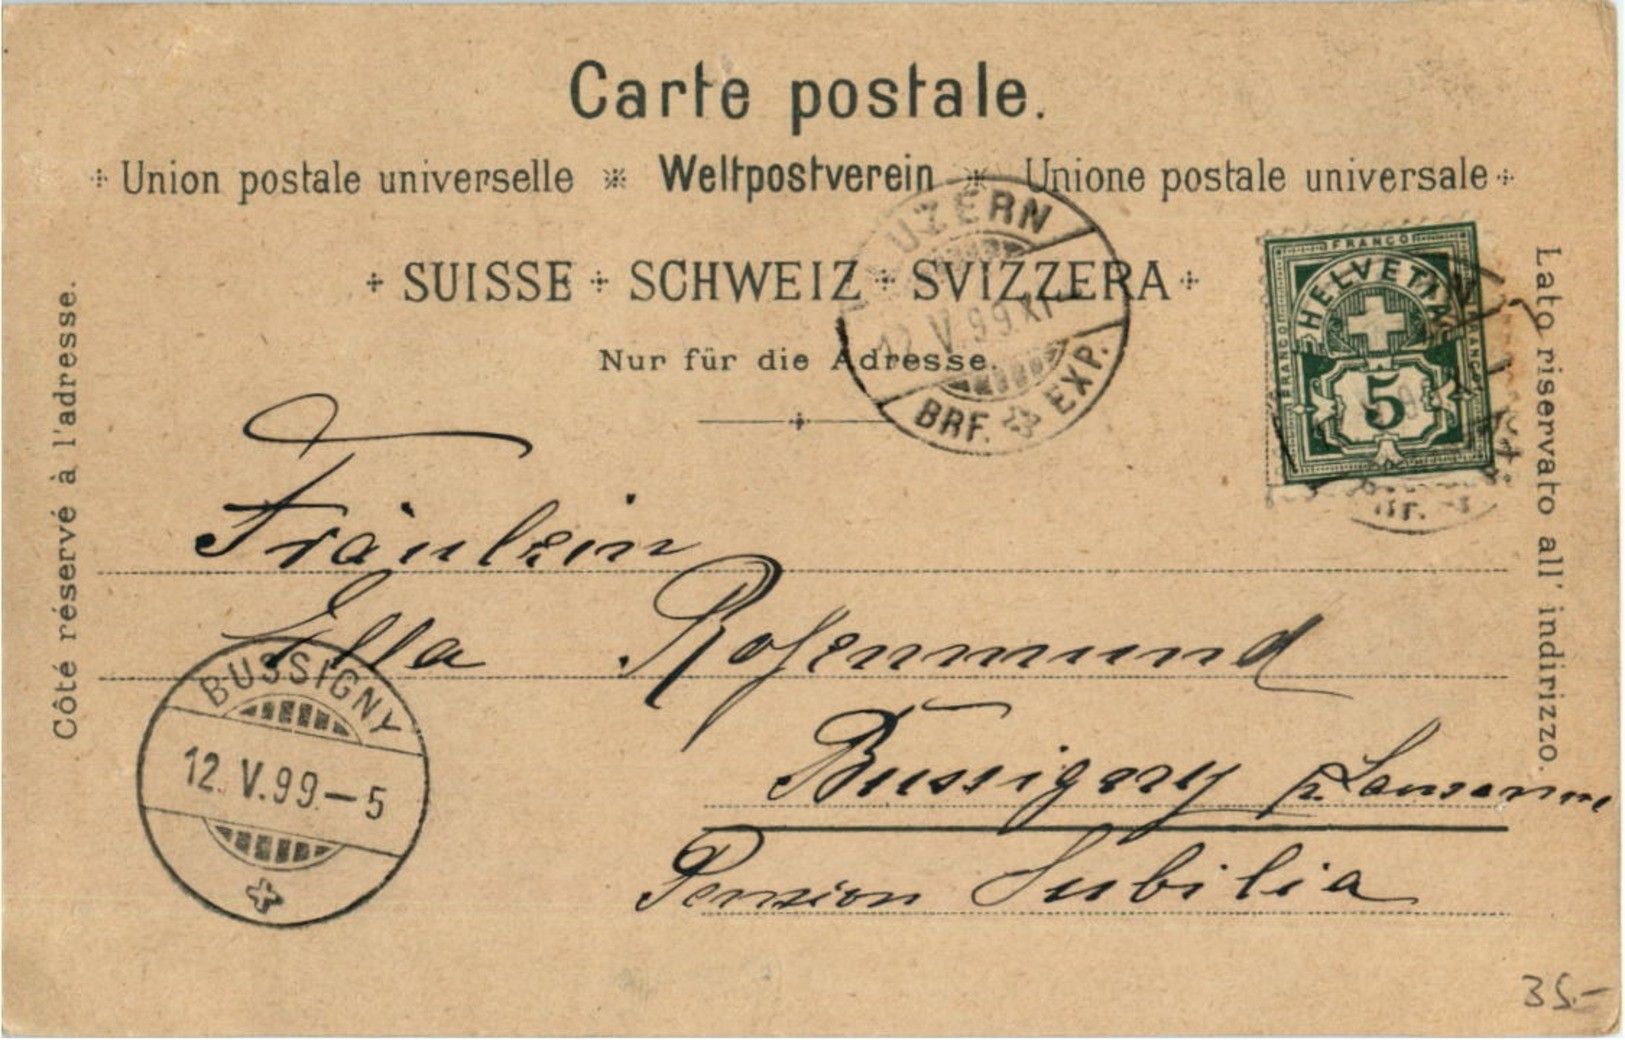 Carte postale.
Union postale universelle Weltpostverein Unione postale universale
SUISSE SCHWEIZ SVIZZERA
Nur für die Adresse.
Côté réservé à l'adresse.
Lato riservato all' indirizzo.
LUZERN
12.V.99.XI
BRF. EXP.
FRANCO
FRANCO
FRANCO
HELVETIA
5
Fräulein
Ella Rosenmund
Bussigny p. Lausanne
Pension Subilia
BUSSIGNY
12.V.99.–5
35.–